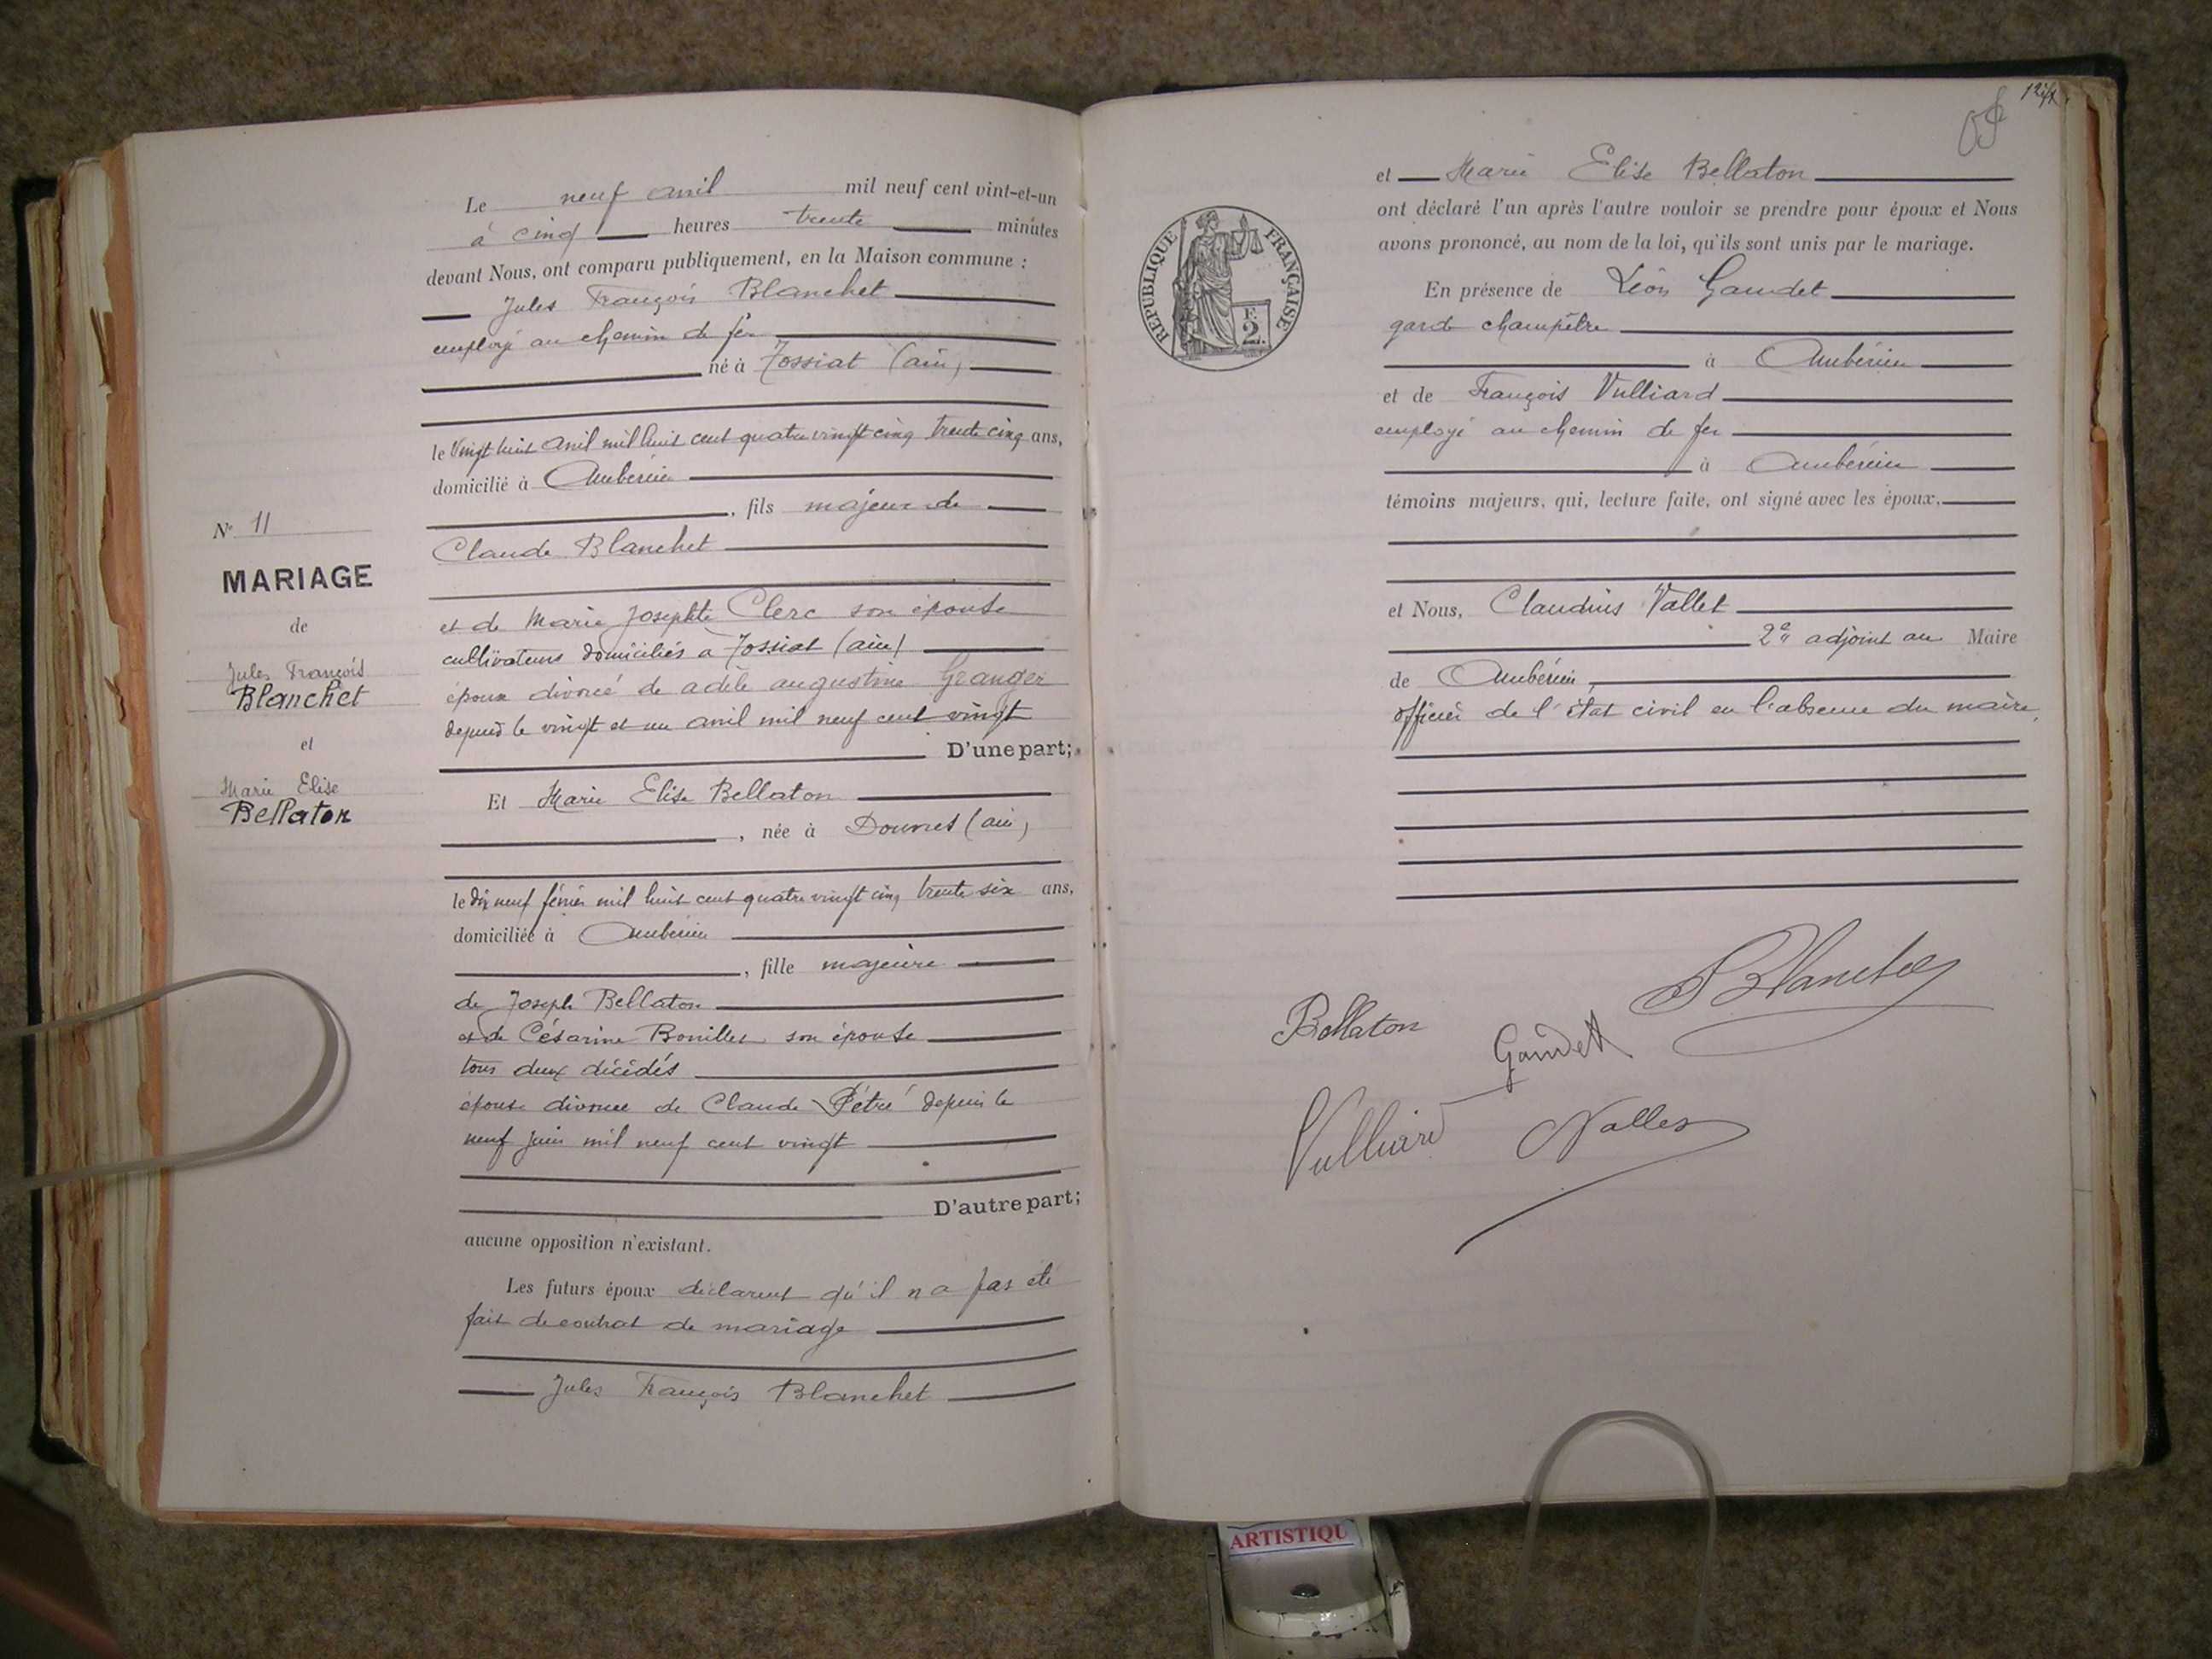 Le neuf avril mil neuf cent vint-et-un
à cinq heures trente minutes
devant Nous, ont comparu publiquement, en la Maison commune :
Jules François Blanchet
employé au chemin de fer
né à Tossiat (ain)
le vingt huit avril mil huit cent quatre vingt cinq trente cinq ans,
domicilié à Ambérieu
, fils majeur de
Claude Blanchet
et de Marie Josephte Clerc son épouse
cultivateurs domiciliés à Tossiat (ain)
époux divorcé de adèle augustine Granger
depuis le vingt et un avril mil neuf cent vingt
D'une part;
Et Marie Elise Bellaton
, née à Douvres (ain)
le dix neuf février mil huit cent quatre vingt cinq trente six ans,
domiciliée à Ambérieu
, fille majeure
de Joseph Bellaton
et de Césarine Bouillet son épouse
tous deux décédés
épouse divorcée de Claude Pétré depuis le
neuf juin mil neuf cent vingt
D'autre part;
aucune opposition n'existant.
Les futurs époux déclarent qu'il n a pas été
fait de contrat de mariage
Jules François Blanchet
N° 11
MARIAGE
de
Jules François
Blanchet
et
Marie Elise
Bellaton
et Marie Elise Bellaton
ont déclaré l'un après l'autre vouloir se prendre pour époux et Nous
avons prononcé, au nom de la loi, qu'ils sont unis par le mariage.
En présence de Léon Gaudet
garde champêtre
à Ambérieu
et de François Vulliard
employé au chemin de fer
à Ambérieu
témoins majeurs, qui, lecture faite, ont signé avec les époux.
et Nous, Claudius Vallet
2e adjoint au Maire
de Ambérieu,
officier de l'état civil en l'absence du maire,
RÉPUBLIQUE FRANÇAISE
F.
2.
Bellaton
Blanchet
Gaudet
Vulliard
Vallet
ARTISTIQU